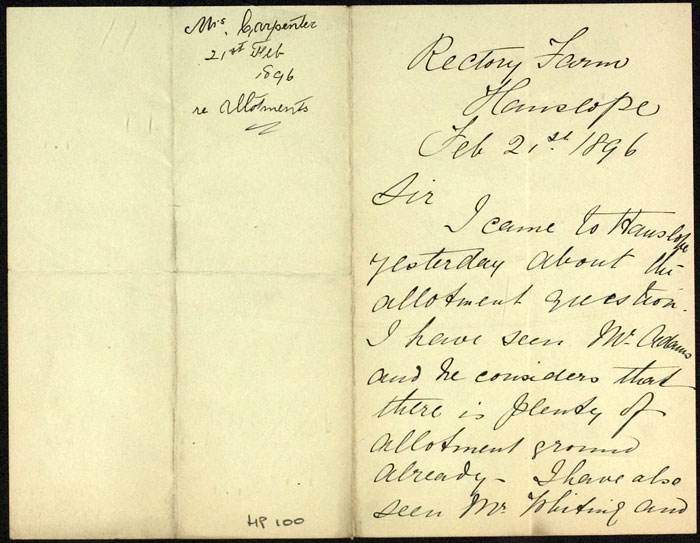 Mrs Carpenter
21st Feb
1896
re Allotments
HP 100
Rectory Farm
Hanslope
Feb 21st 1896
Sir
I came to Hanslope
yesterday about the
allotment question.
I have seen Mr. Adams
and he considers that
there is plenty of
allotment ground
already - I have also
seen Mr. Whiting and